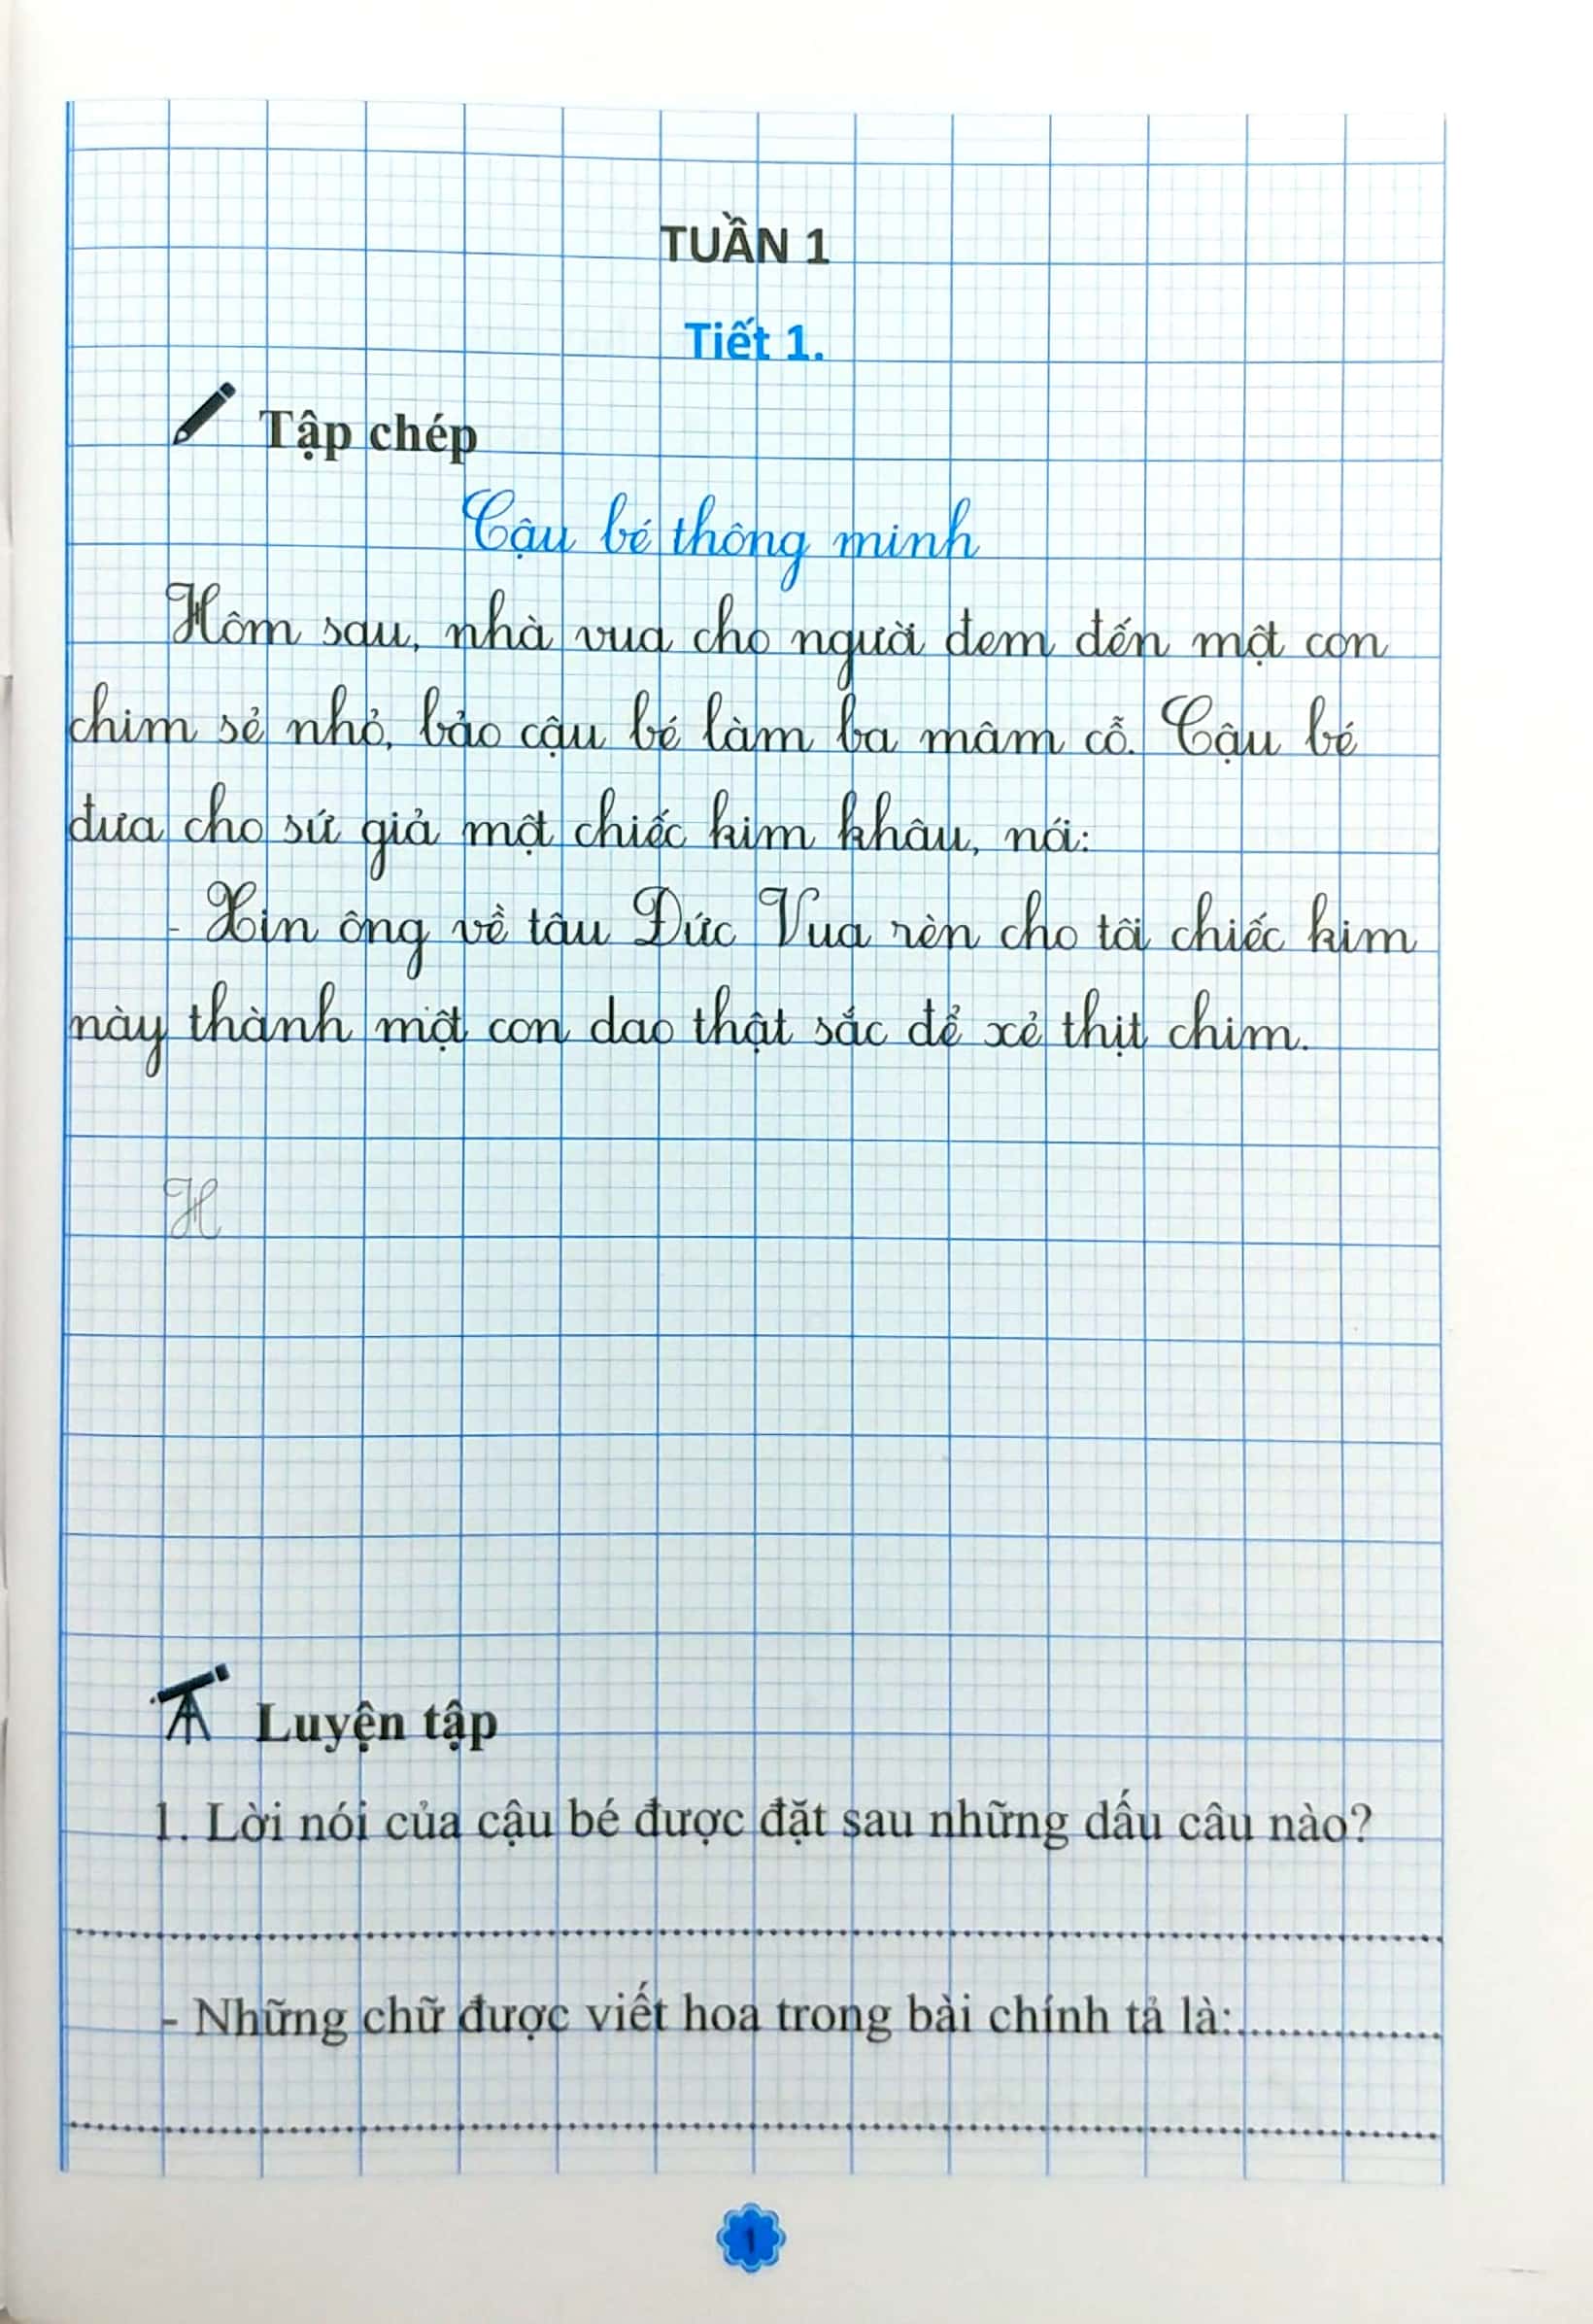 TUẦN 1
Tiết 1.
Tập chép
Cậu bé thông minh
Hôm sau, nhà vua cho người đem đến một con
chim sẻ nhỏ, bảo cậu bé làm ba mâm cỗ. Cậu bé
đưa cho sứ giả một chiếc kim khâu, nói:
- Xin ông về tâu Đức Vua rèn cho tôi chiếc kim
này thành một con dao thật sắc để xẻ thịt chim.
H
Luyện tập
1. Lời nói của cậu bé được đặt sau những dấu câu nào?
- Những chữ được viết hoa trong bài chính tả là:..............
1